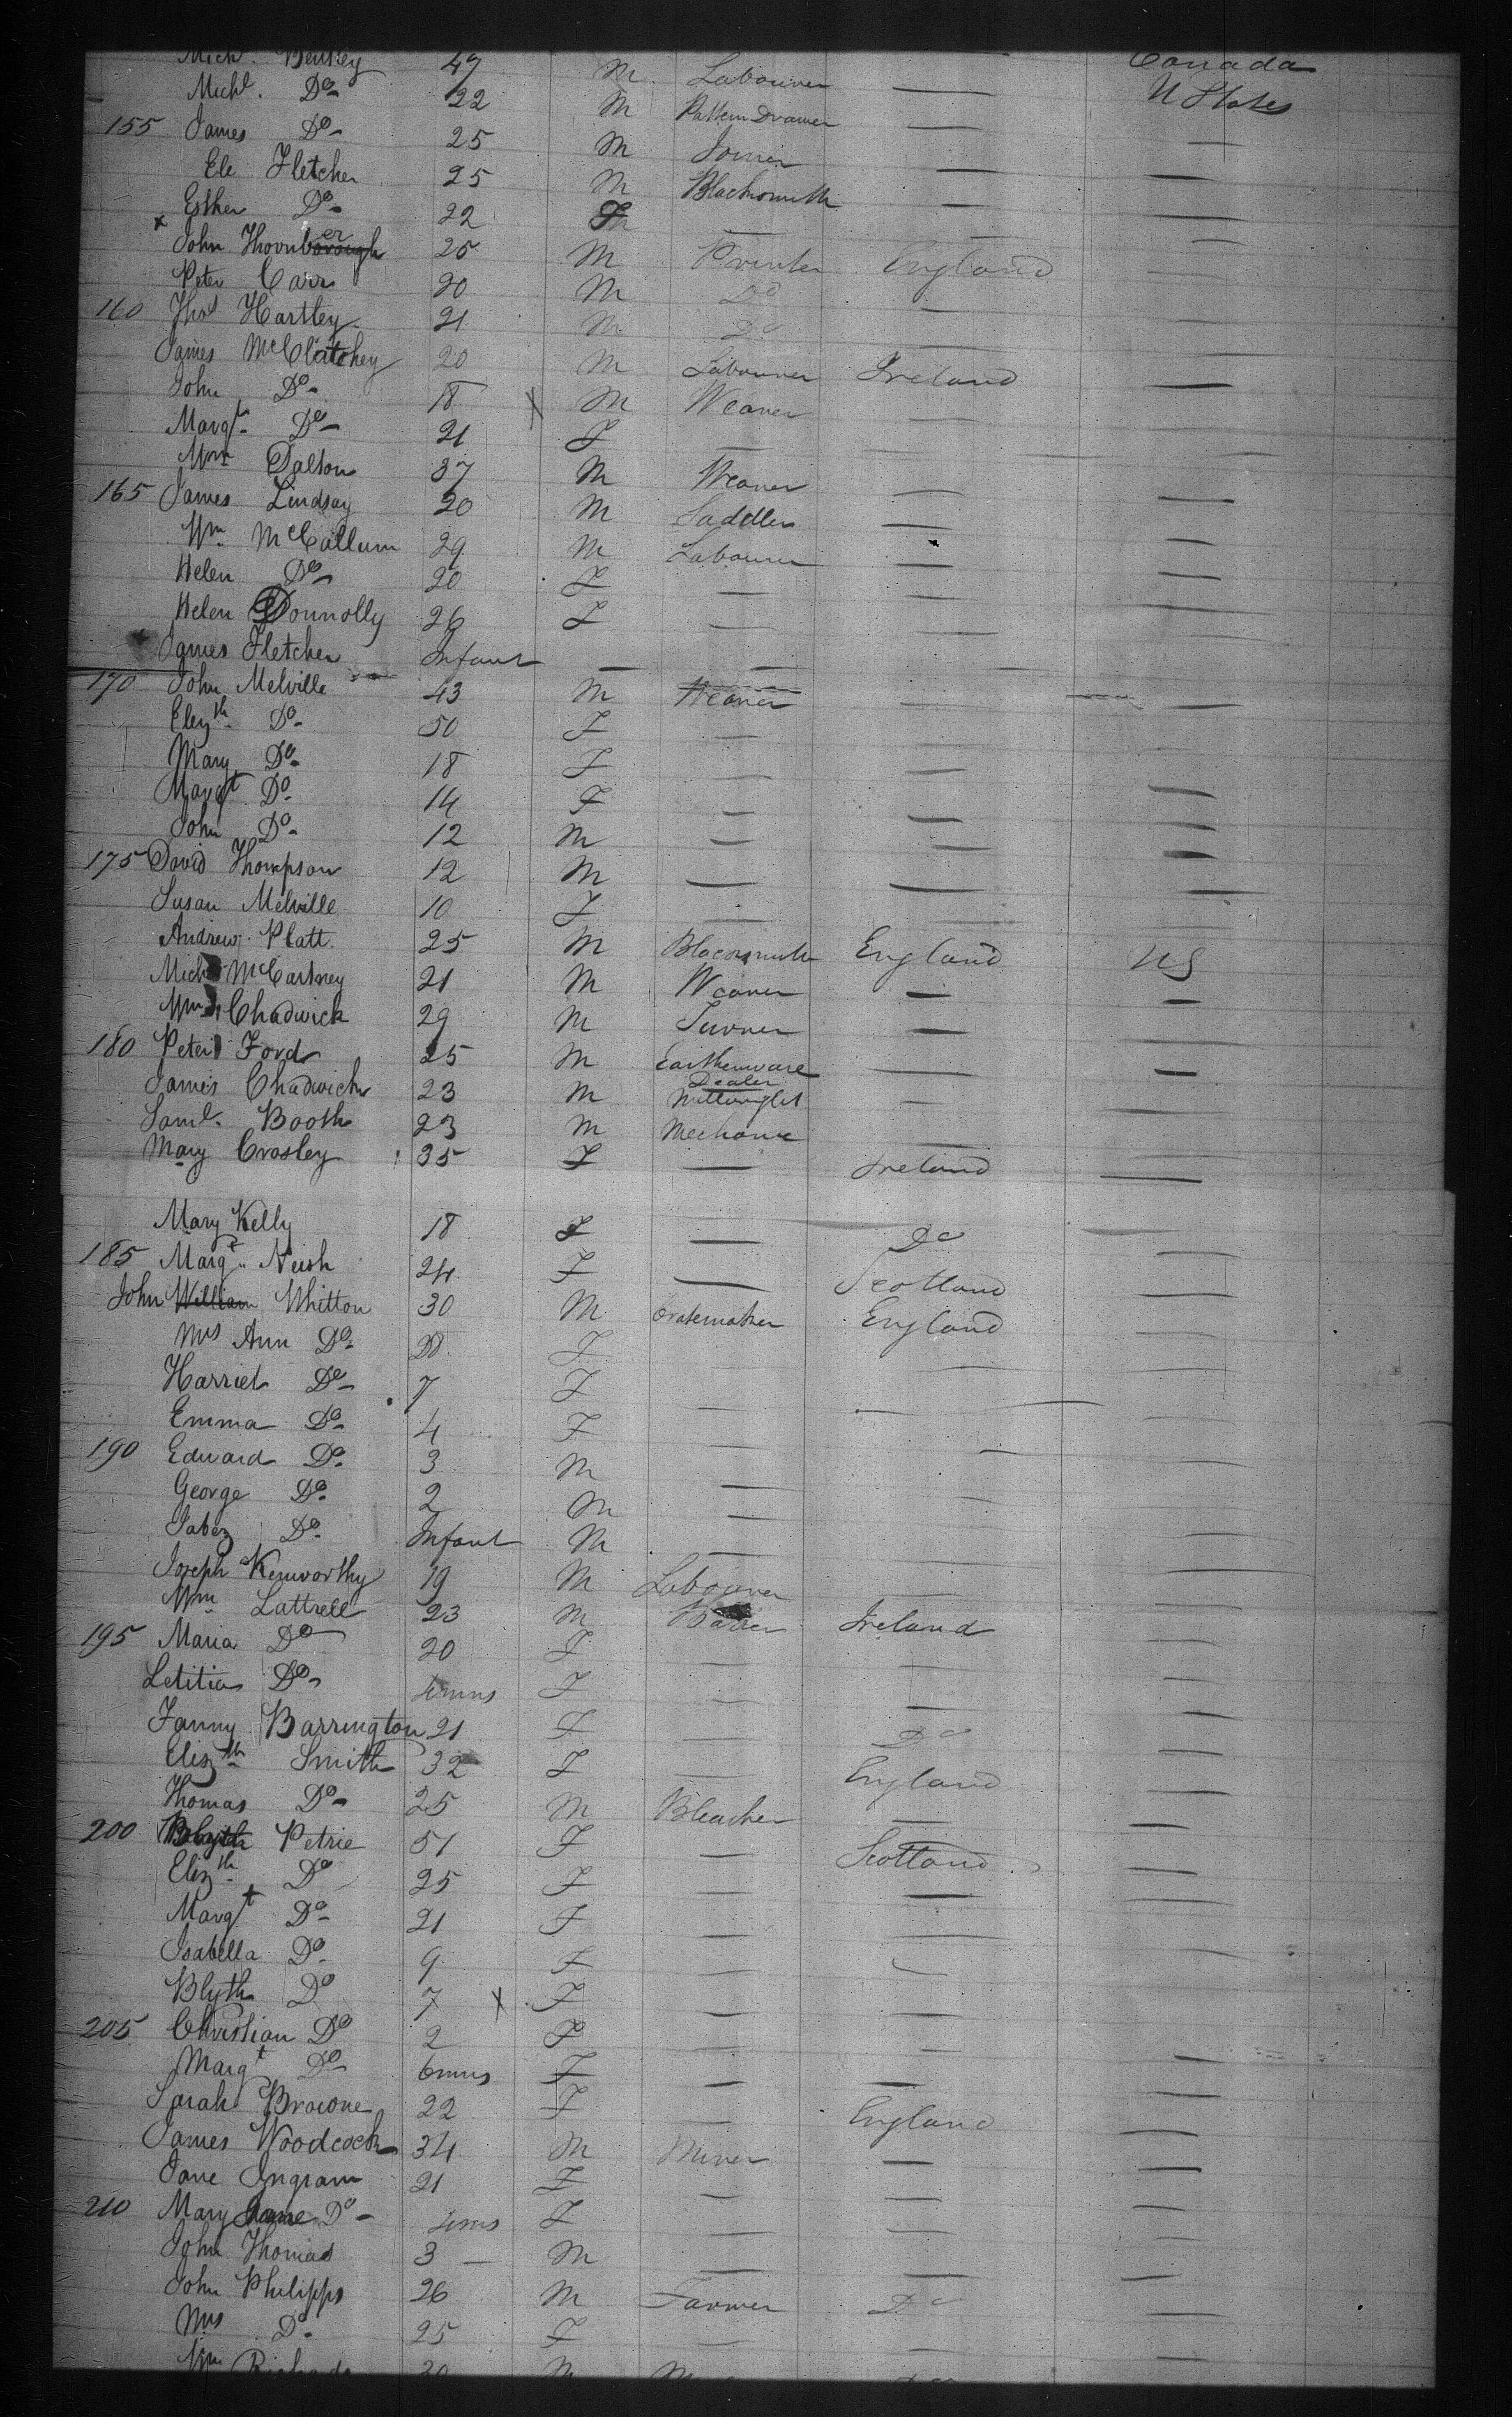 Mich. 47 M Labourer — Canada
Michl. Do 22 M Pattern Drawer — U States
155 James Do 25 M Joiner — —
Ele Fletcher 25 M Blacksmith — —
Esther Do 22 F — — —
x John Thornborough er 25 M Printer England —
Peter Carr 20 M Do — —
160 Thos Hartley 21 M Do — —
James McClatchey 20 M Labourer Ireland —
John Do 18 X M Weaver — —
Margt Do 21 F — — —
Wm Dalton 37 M Weaver — —
165 James Lindsay 20 M Saddler — —
Wm McCallum 29 M Labourer — —
Helen Do 20 F — — —
Helen Donnolly 26 F — — —
James Fletcher Infant — — —
170 John Melville 43 M Weaver — —
Elezth Do 50 F — — —
Mary Do 18 F — — —
Margt Do 14 F — — —
John Do 12 M — — —
175 David Thompson 12 M — — —
Susan Melville 10 F — — —
Andrew Platt 25 M Blacksmith England US
Mich McCartney 21 M Weaver — —
Wm Chadwick 29 M Turner — —
180 Peter Ford 25 M Earthenware Dealer — —
James Chadwick 23 M Millwright — —
Saml. Booth 23 M Mechanic — —
Mary Crosley 35 F — Ireland —
Mary Kelly 18 F — Do —
185 Margt Neish 24 F — Scotland —
John William Whitton 30 M Cratemaker England —
Mrs Ann Do 28 F — — —
Harriet Do 7 F — — —
Emma Do 4 F — — —
190 Edward Do 3 M — — —
George Do 2 M — — —
Jabez Do Infant M — — —
Joseph Kenworthy 19 M Labourer — —
Wm Lattrell 23 M Ireland —
195 Maria Do 20 F — — —
Letitia Do 4mns F — — —
Fanny Barrington 21 F — Do —
Elizth Smith 32 F — England —
Thomas Do 25 M Bleacher — —
200 Blyth Petrie 51 F — Scotland —
Elizth Do 25 F — — —
Margt Do 21 F — — —
Isabella Do 9 F — — —
Blyth Do 7 X F — — —
205 Christian Do 2 F — — —
Margt Do 6mns F — — —
Sarah Browne 22 F — England —
James Woodcock 34 M Miner — —
Jane Ingram 21 F — — —
210 Mary Jane Do 4mns F — — —
John Thomas 3 — M — — —
John Philipps 26 M Farmer Do —
Mrs Do 25 F — — —
Wm Richards 30 M Do